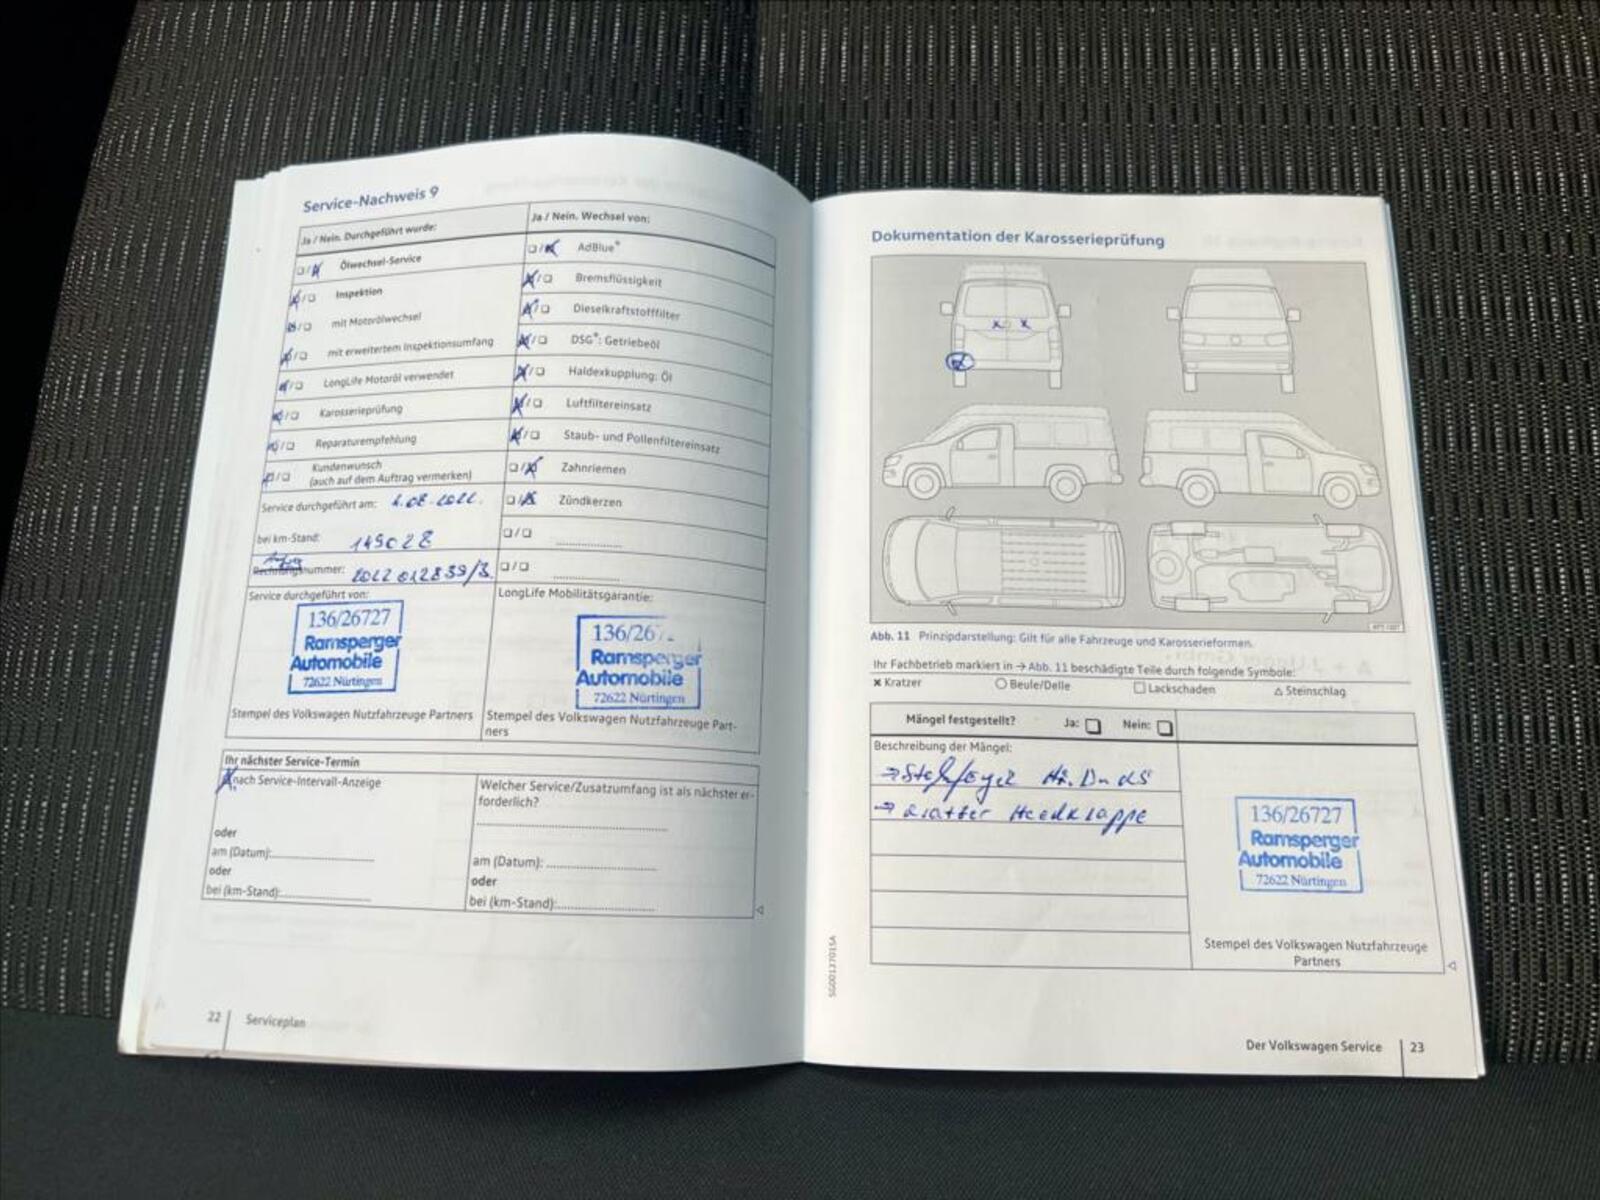 Service-Nachweis 9
Ja / Nein. Durchgeführt wurde:
Ölwechsel-Service
Inspektion
mit Motorölwechsel
mit erweitertem Inspektionsumfang
LongLife Motoröl verwendet
Karosserieprüfung
Reparaturempfehlung
Kundenwunsch
(auch auf dem Auftrag vermerken)
Service durchgeführt am:
bei km-Stand: 149028
Rechnungsnummer:
Ja / Nein. Wechsel von:
AdBlue®
Bremsflüssigkeit
Dieselkraftstofffilter
DSG®: Getriebeöl
Haldexkupplung: Öl
Luftfiltereinsatz
Staub- und Pollenfiltereinsatz
Zahnriemen
Zündkerzen
Service durchgeführt von:
136/26727
Ramsperger
Automobile
72622 Nürtingen
Stempel des Volkswagen Nutzfahrzeuge Partners
LongLife Mobilitätsgarantie:
Ramsperger
Automobile
72622 Nürtingen
Stempel des Volkswagen Nutzfahrzeuge Part-
ners
Ihr nächster Service-Termin
nach Service-Intervall-Anzeige
oder
am (Datum):
oder
bei (km-Stand):
Welcher Service/Zusatzumfang ist als nächster er-
forderlich?
am (Datum):
oder
bei (km-Stand):
22 Serviceplan
Dokumentation der Karosserieprüfung
Abb. 11 Prinzipdarstellung: Gilt für alle Fahrzeuge und Karosserieformen.
Ihr Fachbetrieb markiert in → Abb. 11 beschädigte Teile durch folgende Symbole:
× Kratzer ○ Beule/Delle □ Lackschaden △ Steinschlag
Mängel festgestellt? Ja: Nein:
Beschreibung der Mängel:
→ Kratzer Heckklappe
136/26727
Ramsperger
Automobile
72622 Nürtingen
Stempel des Volkswagen Nutzfahrzeuge
Partners
SG0013701SA
Der Volkswagen Service 23